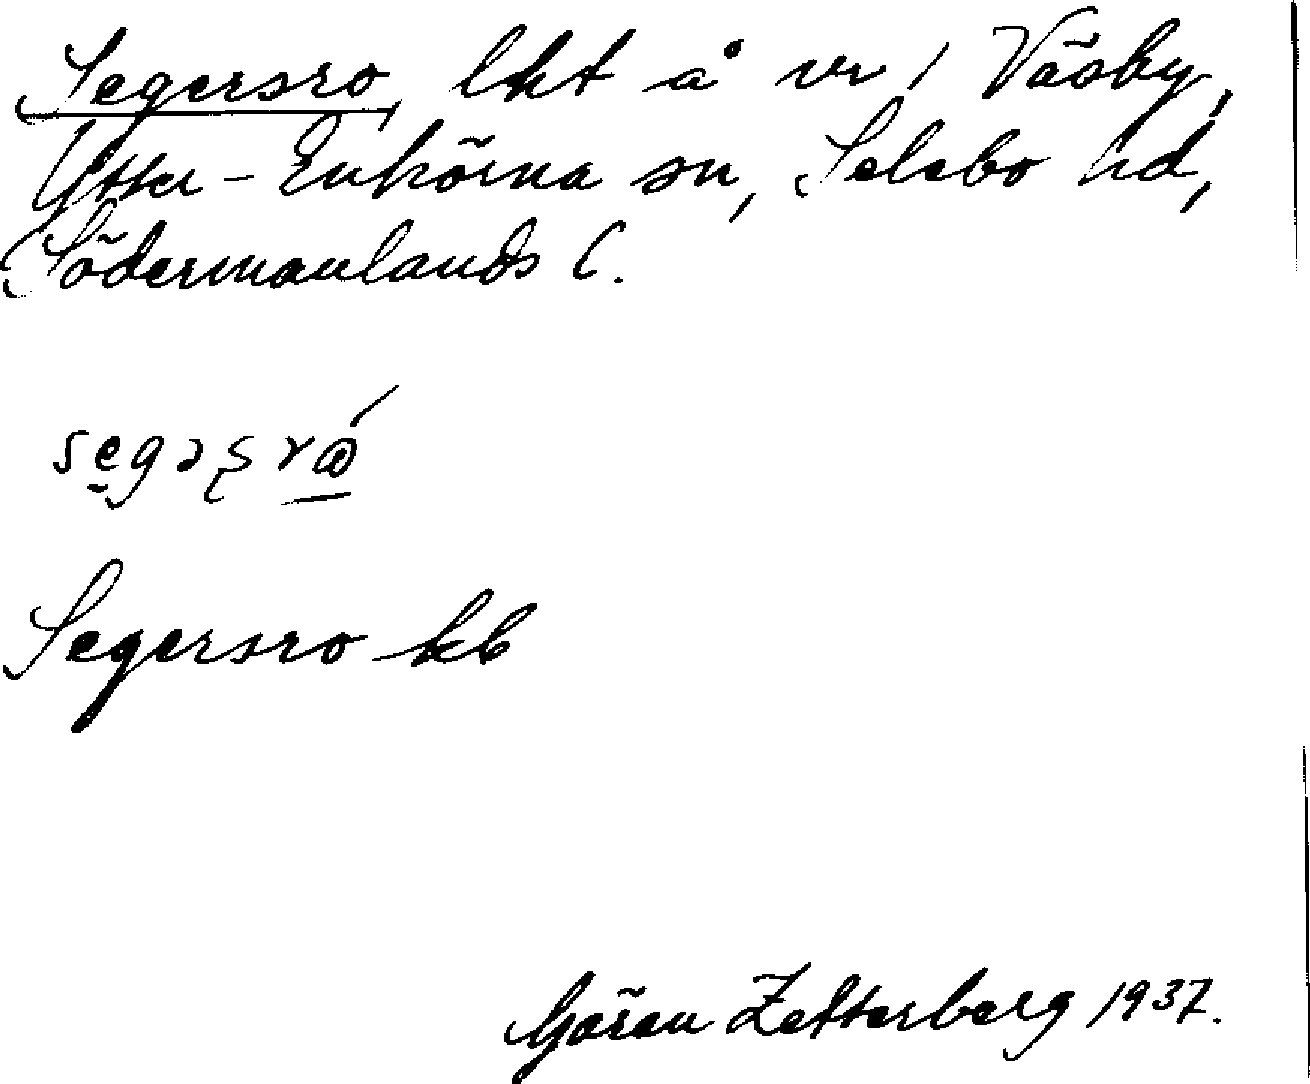 Segersro, lht å nr 1 Väsby,
Ytter-Enhörna sn, Selebo hd,
Södermanlands l.
Segersro kb
Göran Zetterberg 1937.